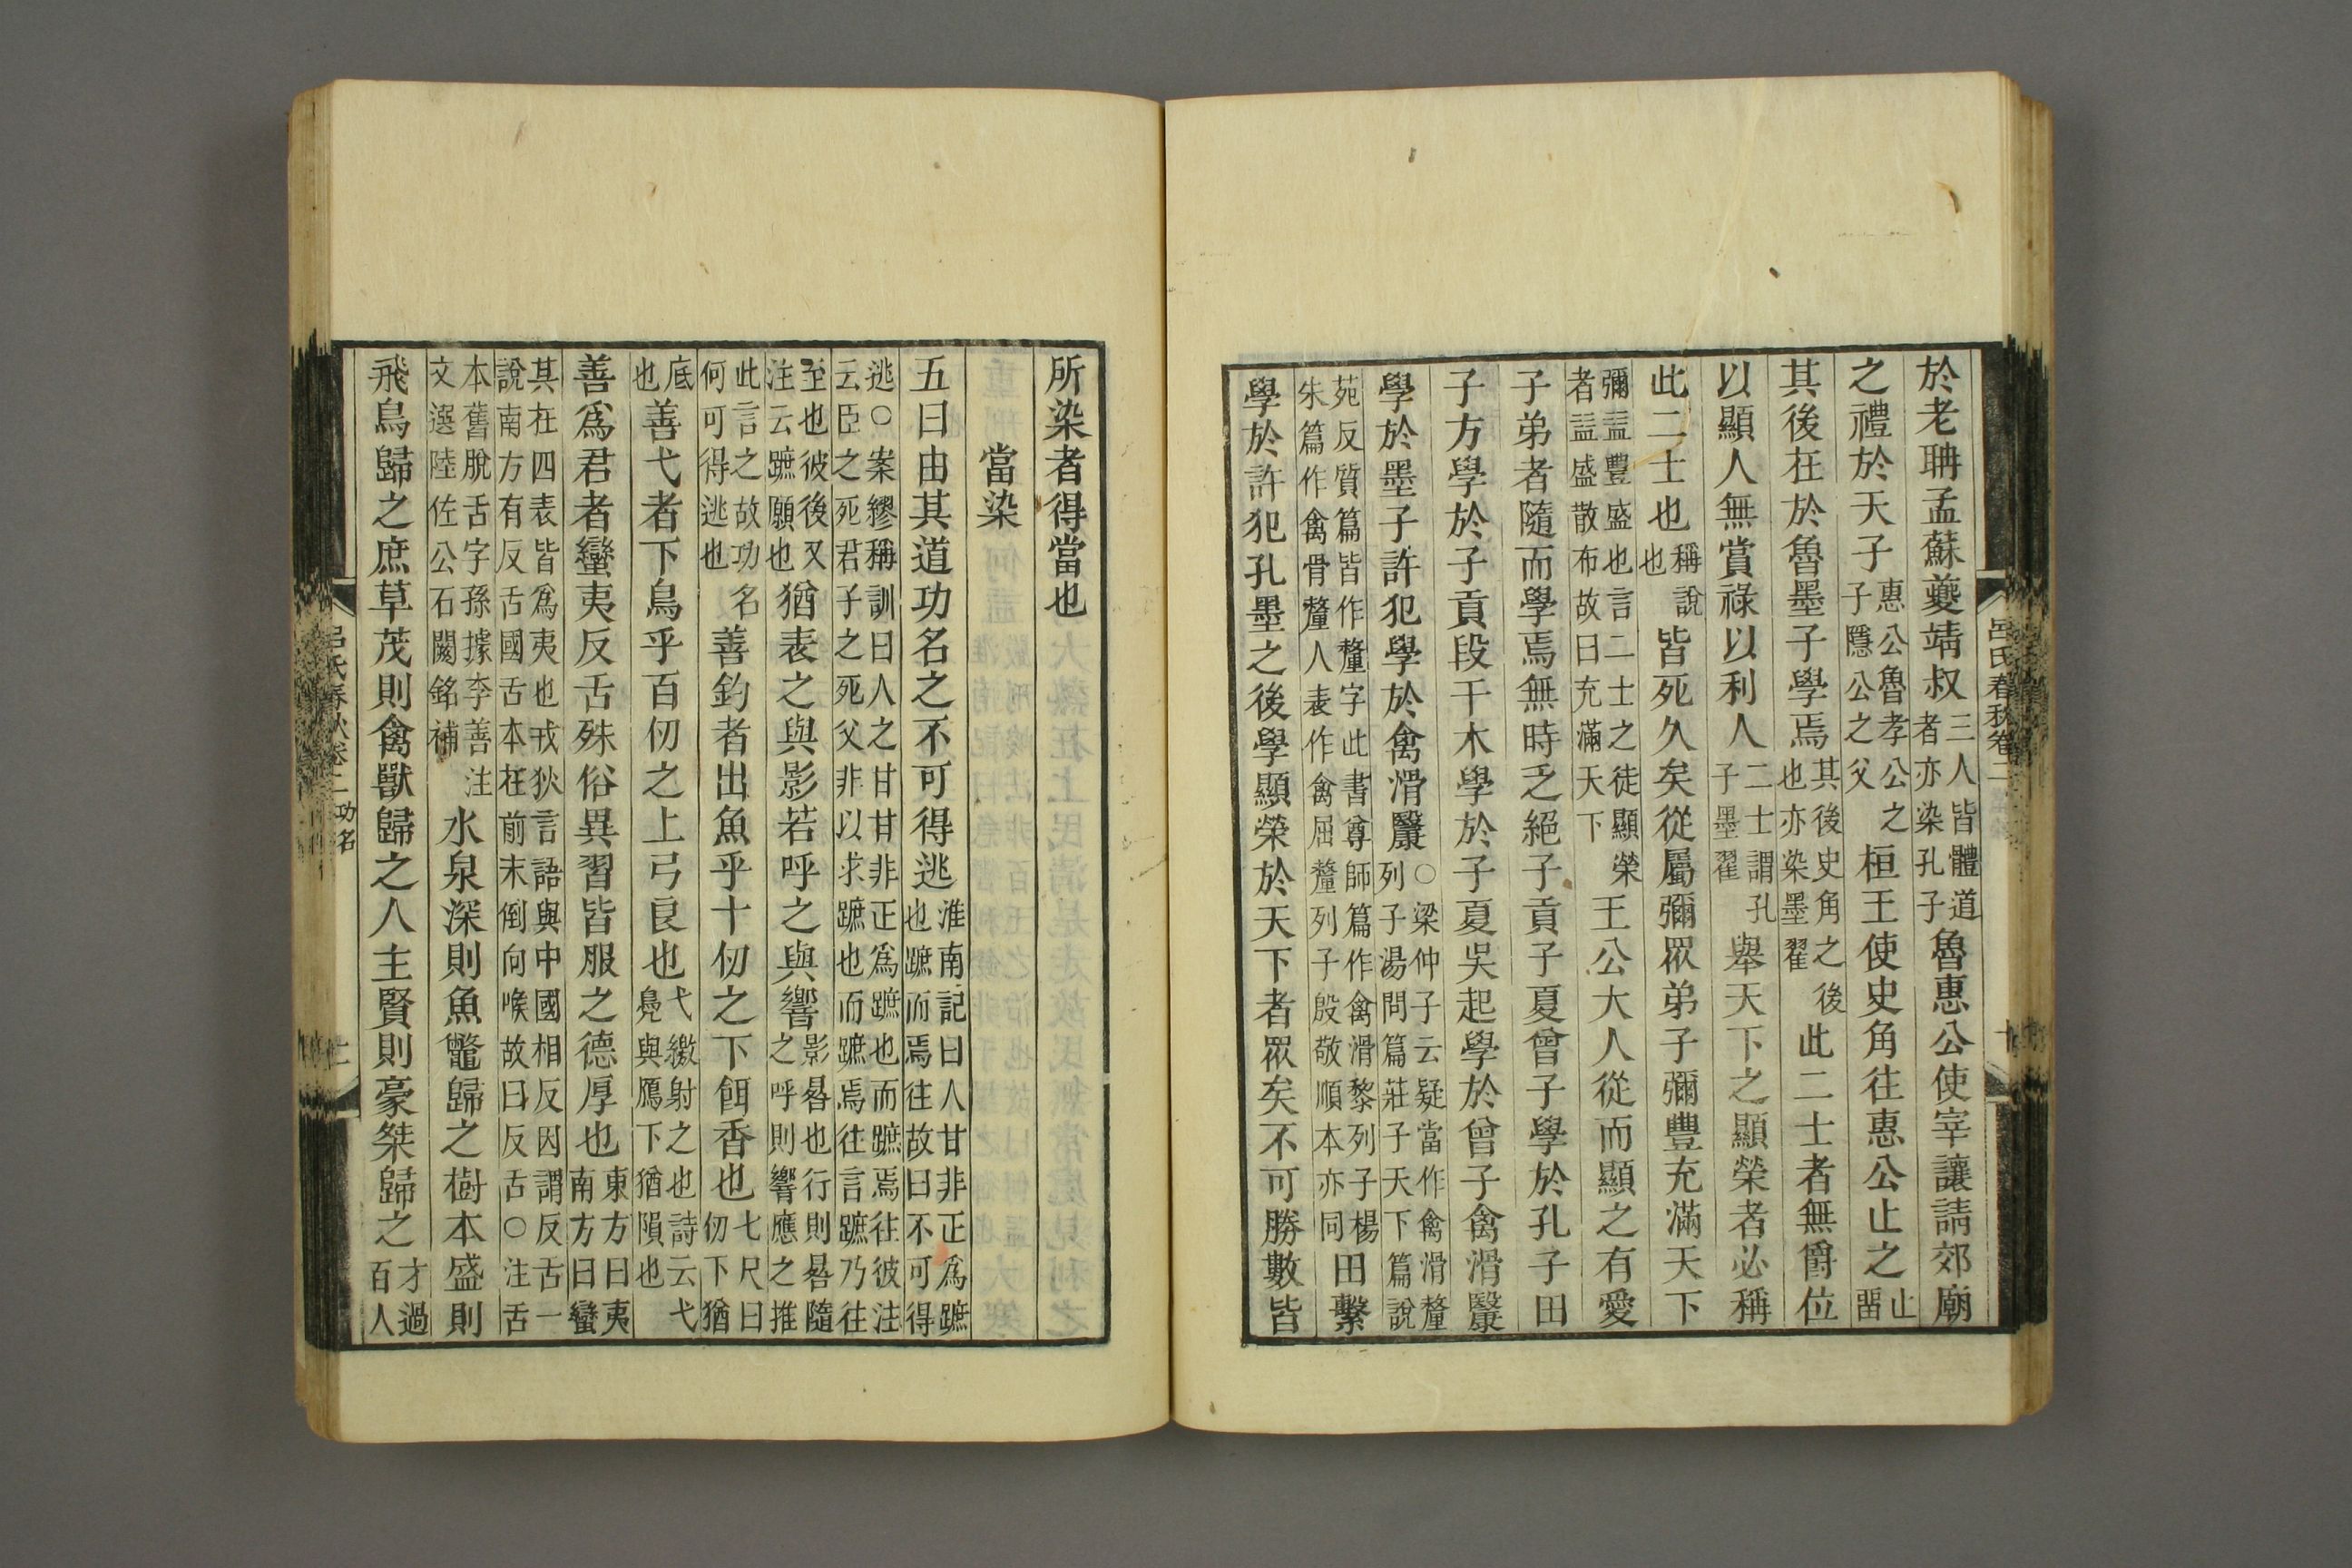 於老聃孟蘇夔靖叔三人皆體道者亦染孔子魯惠公使宰讓請郊廟
之禮於天子惠公魯孝公之子隱公之父桓王使史角往惠公止之止留
其後在於魯墨子學焉其後史角之後也亦染墨翟此二士者無爵位
以顯人無賞祿以利人二士謂孔子墨翟舉天下之顯榮者必稱
此二士也稱說也皆死久矣從屬彌眾弟子彌豐充滿天下
彌益豐盛也言二士之徒顯榮者益盛散布故曰充滿天下王公大人從而顯之有愛
子弟者隨而學焉無時乏絕子貢子夏曾子學於孔子田
子方學於子貢段干木學於子夏吳起學於曾子禽滑釐
學於墨子許犯學於禽滑釐○梁仲子云疑當作禽滑釐列子湯問篇莊子天下篇說
苑反質篇皆作釐字此書尊師篇作禽滑黎列子楊朱篇作禽骨釐人表作禽屈釐列子殷敬順本亦同田繫
學於許犯孔墨之後學顯榮於天下者眾矣不可勝數皆
呂氏春秋卷二
十
所染者得當也
當染
五曰由其道功名之不可得逃淮南記曰人甘非正爲蹠也蹠而焉往故曰不可得
逃○案繆稱訓曰人之甘甘非正爲蹠也而蹠焉往彼注云臣之死君子之死父非以求蹠也而蹠焉往言蹠乃往
至也彼後又注云蹠願也猶表之與影若呼之與響影晷也行則晷隨之呼則響應之推
此言之故功名何可得逃也善釣者出魚乎十仞之下餌香也七尺曰仞下猶
底也善弋者下鳥乎百仞之上弓良也弋繳射之也詩云弋鳧與鴈下猶隕也
善爲君者蠻夷反舌殊俗異習皆服之德厚也東方曰夷南方曰蠻
其在四表皆爲夷也戎狄言語與中國相反因謂反舌一說南方有反舌國舌本在前末倒向喉故曰反舌○注舌
本舊脫舌字孫據李善注文選陸佐公石闕銘補水泉深則魚鼈歸之樹本盛則
飛鳥歸之庶草茂則禽獸歸之人主賢則豪桀歸之才過百人
呂氏春秋卷二 功名